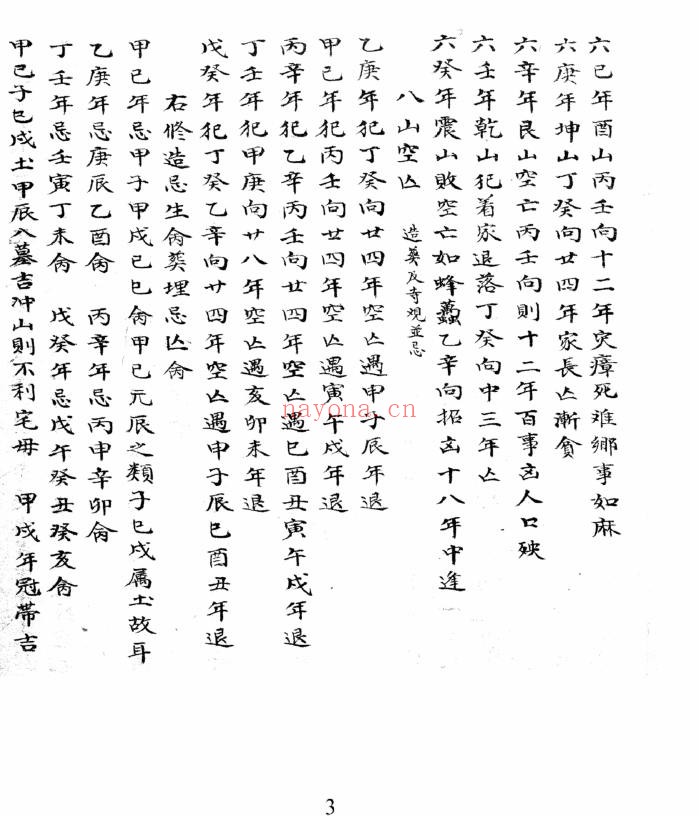 六己年酉山丙壬向十二年灾瘴死难鄉事如麻
六庚年坤山丁癸向廿四年家長亡漸貧
六辛年艮山空亡丙壬向則十二年百事凶人口殃
六壬年乾山犯着家退落丁癸向中三年亡
六癸年震山敗空亡如蜂蠆乙辛向招凶十八年中逢
八山空亡 造葬及寺观並忌
乙庚年犯丁癸向廿四年空亡遇甲子辰年退
甲己年犯丙壬向廿四年空亡遇寅午戌年退
丙辛年犯乙辛丙壬向廿四年空亡遇巳酉丑寅午戌年退
丁壬年犯甲庚向廿八年空亡遇亥卯未年退
戊癸年犯丁癸乙辛向廿四年空亡遇申子辰巳酉丑年退
右修造忌生命葬埋忌亡命
甲己年忌甲子甲戌己巳命甲己元辰之類子巳戌属土故耳
乙庚年忌庚辰乙酉命 丙辛年忌丙申辛卯命
丁壬年忌壬寅丁未命 戊癸年忌戊午癸丑癸亥命
甲己子巳戌土甲辰入墓吉冲山則不利宅母 甲戌年冠帶吉
nayona.cn
3